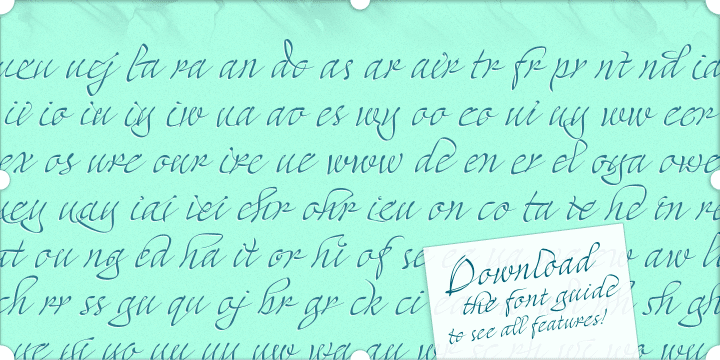 uej la ra an do as ar air tr fr pr nt nd
ii io iu iy iw ua ao es wy oo eo ui uy ww eer
ex os ure our ire ue www de en er el oya owe
uay iai iei ehr ohr ieu on co ta te he in
ou ng ed ha it or hi of se aw
rr ss gu qu oj br gr ck ci sh gh
Download
the font guide
to see all features!